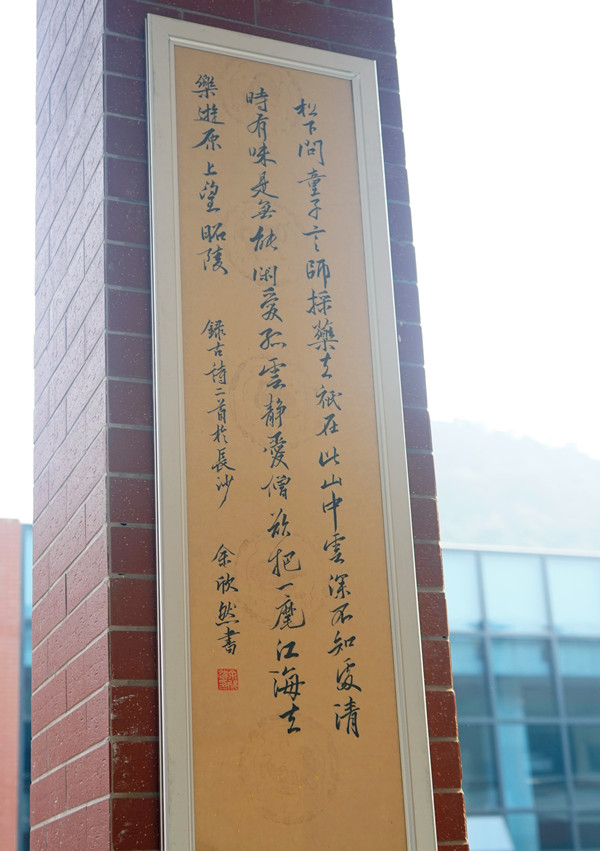 松下問童子言師採藥去祇在此山中雲深不知處清
時有味是無能閑愛孤雲靜愛僧欲把一麾江海去
樂遊原上望昭陵
録古詩二首於長沙 余欣然書